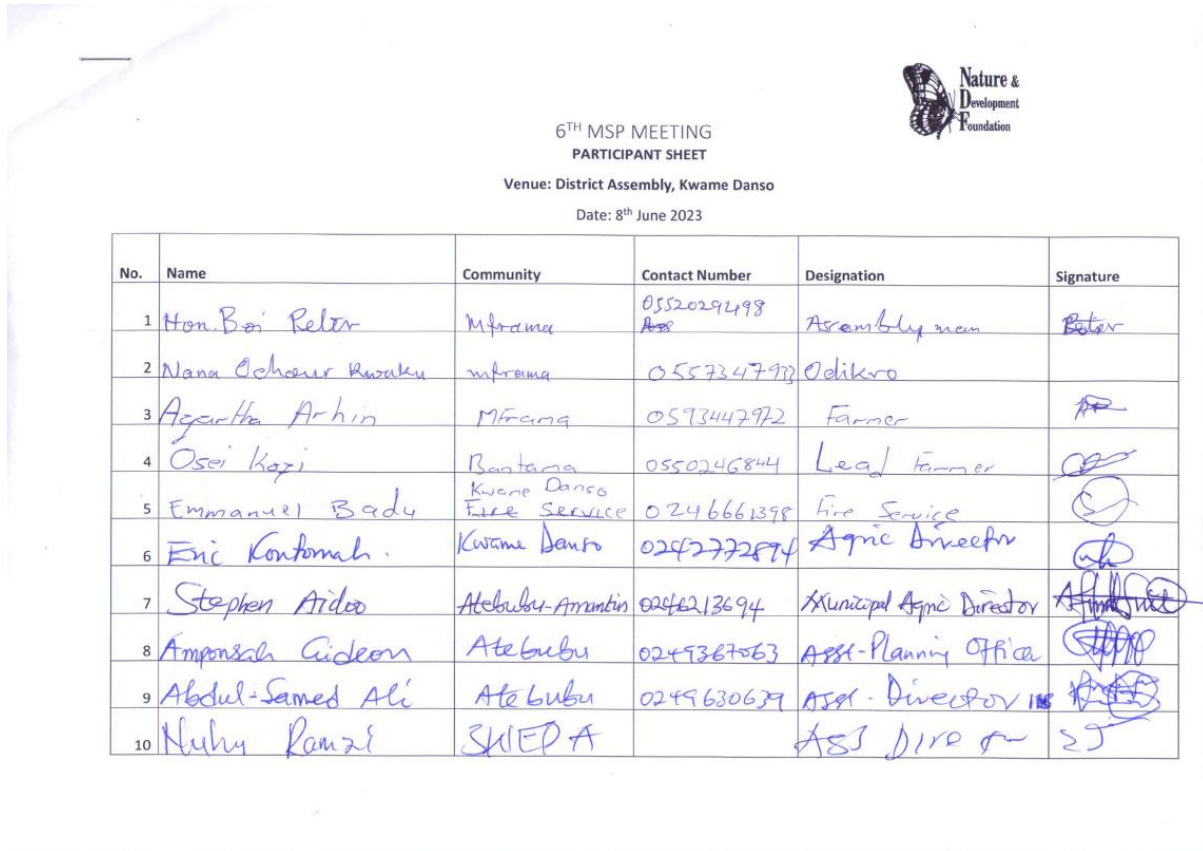 Nature &
Development
Foundation
6TH MSP MEETING
PARTICIPANT SHEET
Venue: District Assembly, Kwame Danso
Date: 8th June 2023
No. Name Community Contact Number Designation Signature
1 Hon. Boi Peter Mframa 0552029498 Assembly man
2 Nana Kwaku mframa 0557347933 Odikro
3 Agartha Arhin Mframa 0593447972 Farmer
4 Osei Kozi Bantama 0550246844 Lead Farmer
5 Emmanuel Badu Kwame Danso Fire Service 0246661398 Fire Service
6 Eric Kontomah. Kwame Danso 0242772894 Agric Director
7 Stephen Aidoo Atebubu-Amantin 0246213694 Municipal Agric Director
8 Amponsah Gideon Atebubu 0249367063 Asst-Planning Officer
9 Abdul-Samed Ali Atebubu 0249630639 Asst. Director
10 Nuhu Ramzi Ass Director